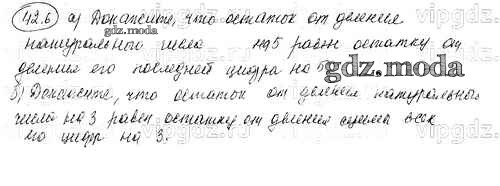 42.6 а) Докажите, что остаток от деления
натурального числа на 5 равен остатку от
деления его последней цифры на 5
gdz.moda
gdz.moda
б) Докажите, что остаток от деления натурального
числа на 3 равен остатку от деления суммы всех
его цифр на 3.
vipgdz.moda
vipgdz